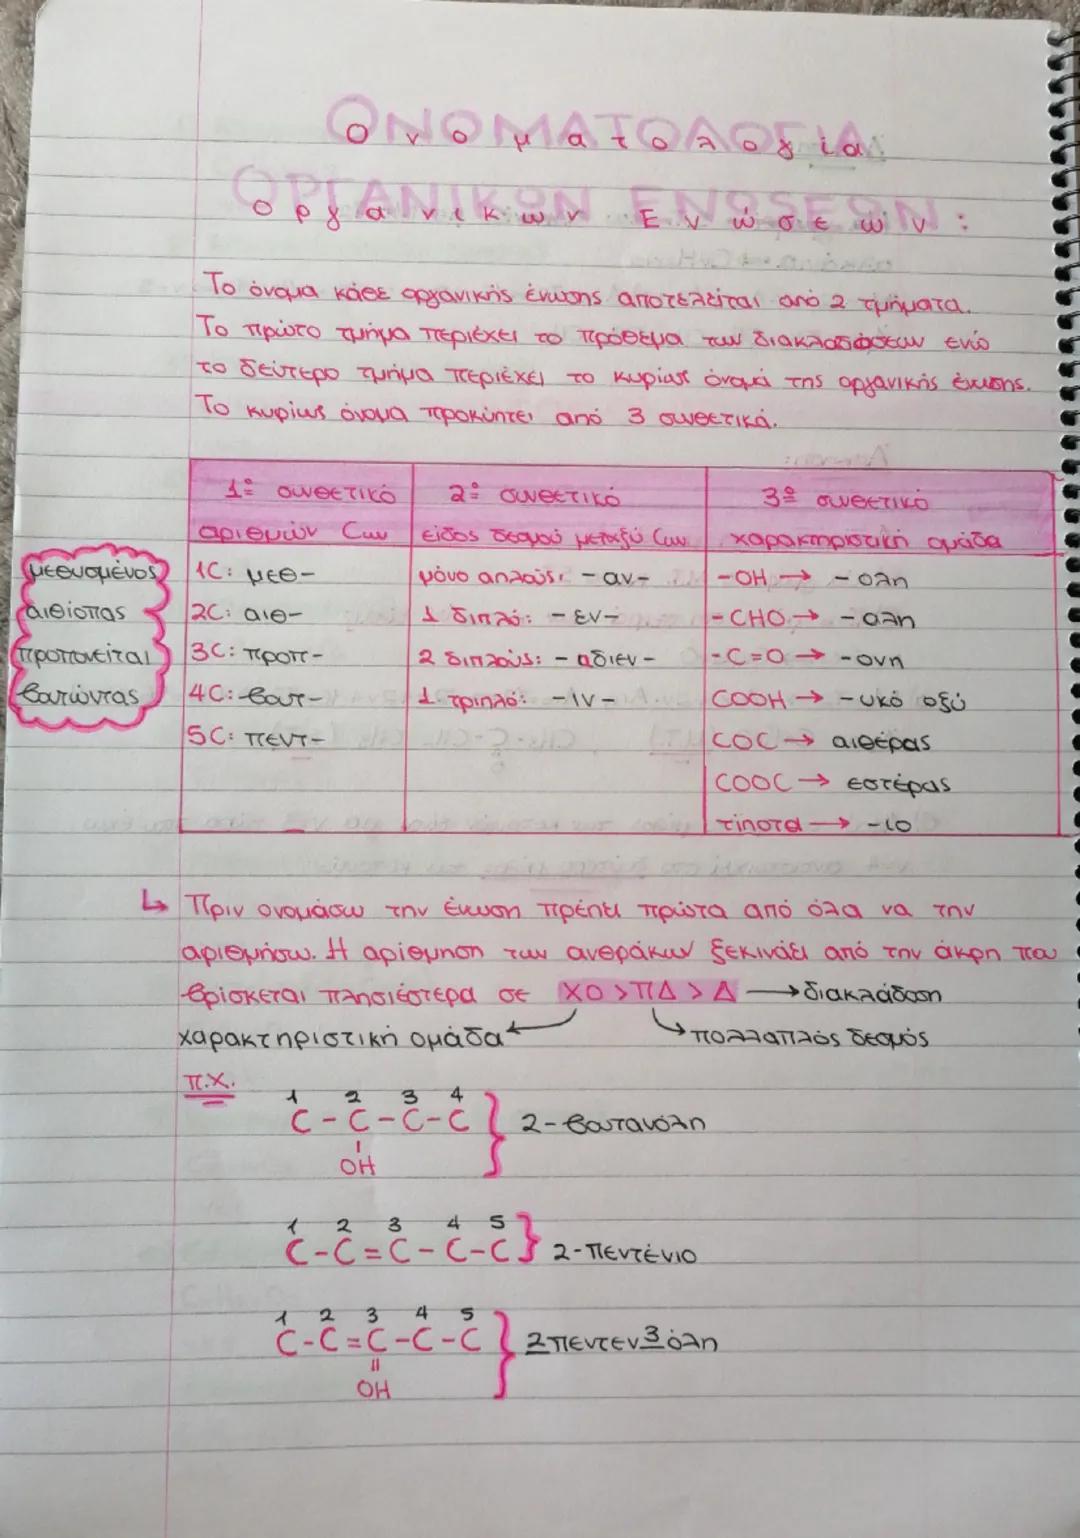 ΟΝΟΜΑΤΟΛΟΓΙΑ
Ονοματολογία
ΟΡΓΑΝΙΚΩΝ ΕΝΩSΕΩΝ
Οργανικών Ενώσεων:
Το όνομα κάθε οργανικής ένωσης αποτελείται από 2 τμήματα.
Το πρώτο τμήμα περιέχει το πρόθεμα των διακλαδώσεων ενώ
το δεύτερο τμήμα περιέχει το κυρίως όνομα της οργανικής ένωσης.
Το κυρίως όνομα προκύπτει από 3 συνθετικά.
1º συνθετικό 2º συνθετικό 3º συνθετικό
αριθμών Cων είδος δεσμού μεταξύ Cων χαρακτηριστική ομάδα
μεθυσμένος 1C: μεθ- μόνο απλούς: -αν- -OH → -ολη
αιθίοπας 2C: αιθ- 1 διπλό: -εν- -CHO → -αλη
προπονείται 3C: προπ- 2 διπλούς: -αδιεν- -C=O → -ονη
βουτώντας 4C: βουτ- 1 τριπλό: -ιν- COOH → -υκό οξύ
5C: πεντ- COC → αιθέρας
COOC → εστέρας
τίποτα → -ιο
↳ Πριν ονομάσω την ένωση πρέπει πρώτα από όλα να την
αριθμήσω. Η αρίθμηση των ανθράκων ξεκινάει από την άκρη που
βρίσκεται πλησιέστερα σε ΧΟ>ΠΔ>Δ → διακλάδωση
χαρακτηριστική ομάδα πολλαπλός δεσμός
π.χ.
1 2 3 4
C-C-C-C } 2-βουτανόλη
OH
1 2 3 4 5
C-C=C-C-C } 2-πεντένιο
1 2 3 4 5
C-C=C-C-C } 2πεντεν3όλη
=
OH